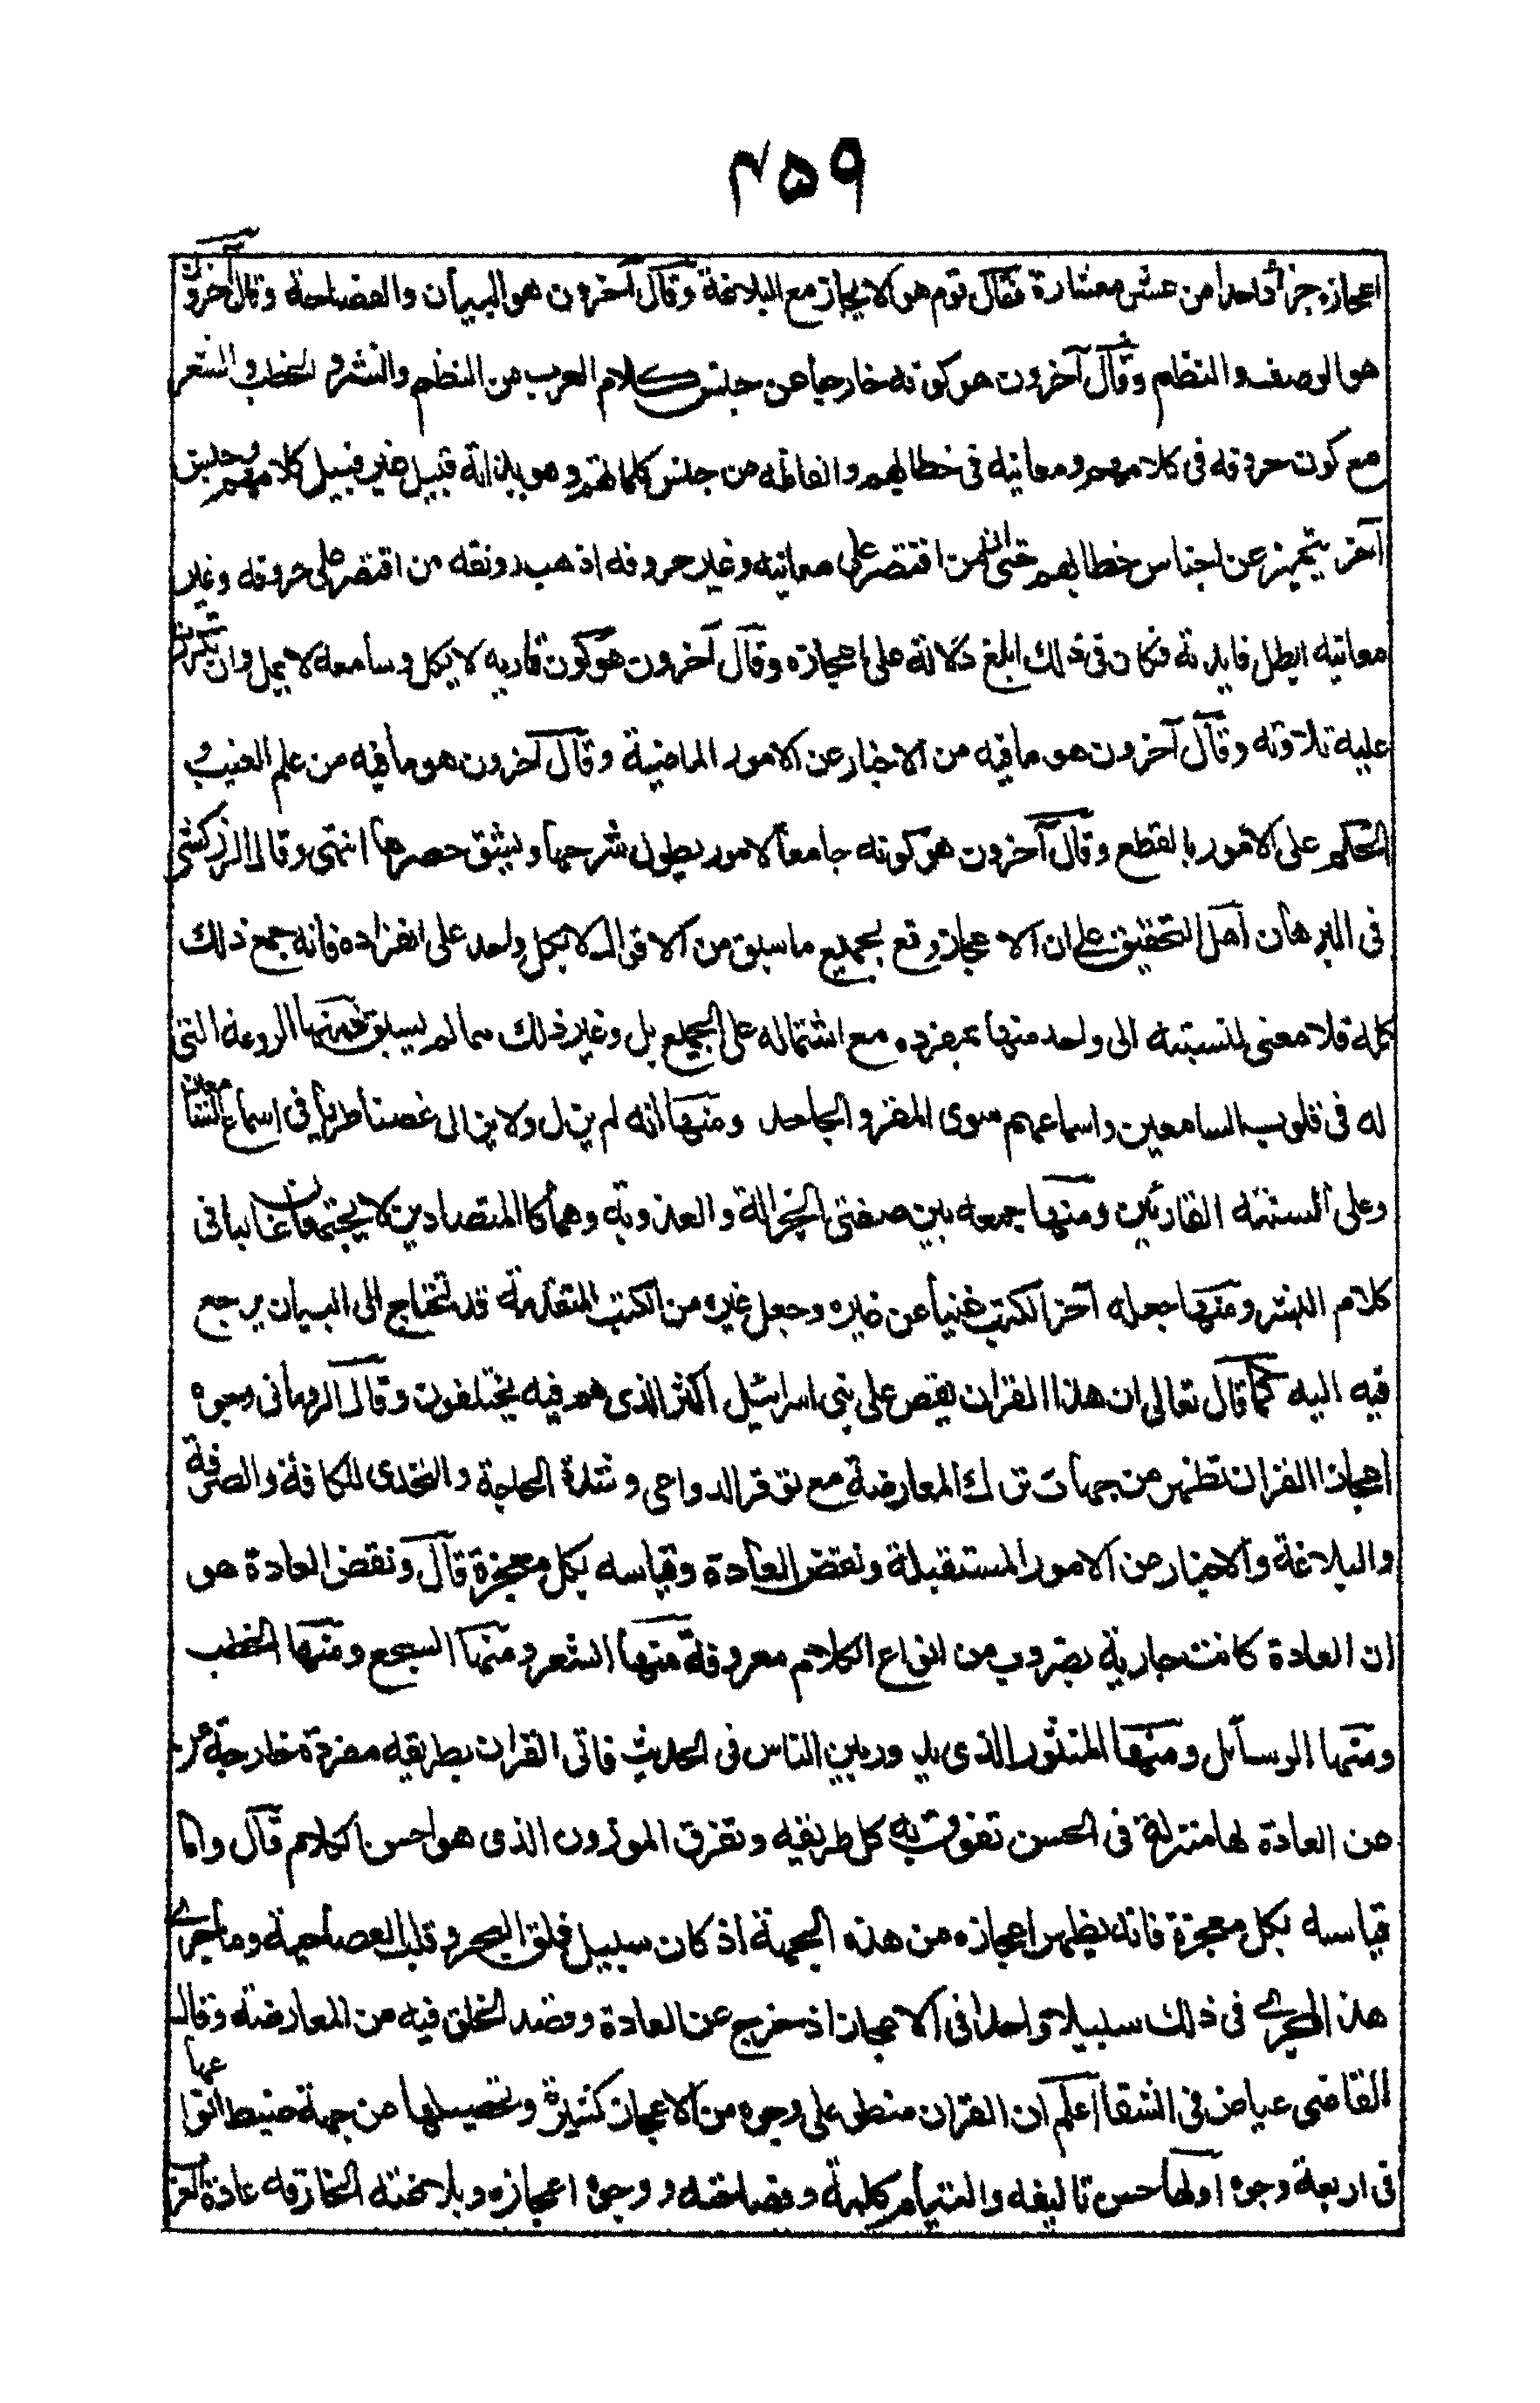 ۴۵۹
اعجازه جزأ واحدا من عشر معشارة فقال قوم هو الايجاز مع البلاغة وقال آخرون هو البيان والفصاحة وقال آخرون
هو الوصف والنظم وقال آخرون هو كونه خارجا عن جنس كلام العرب من النظم والنثر والخطب والشعر
مع كون حروفه فى كلامهم ومعانيه فى خطابهم والفاظه من جنس كلماتهم وهو بذاته قبيل غير قبيل كلامهم وجنس
آخر يتميز عن اجناس خطابهم حتى ان من اقتصر على معانيه وغير حروفه اذهب رونقه من اقتصر على حروفه وغير
معانيه ابطل فايدته فكان فى ذلك ابلغ دلالة على اعجازه وقال آخرون هو كون قاريه لا يكل وسامعه لا يمل وان تكررت
عليه تلاوته وقال آخرون هو ما فيه من الاخبار عن الامور الماضية وقال آخرون هو ما فيه من علم الغيب و
الحكم على الامور بالقطع وقال آخرون هو كونه جامعا لامور يطول شرحها ويشق حصرها انتهى وقال الزركشى
فى البرهان اهل التحقيق على ان الاعجاز وقع بجميع ما سبق من الاقوال لا بكل واحد على انفراده فانه جمع ذلك
كله فلا معنى لنسبته الى واحد منها بمفرده مع اشتماله على الجميع بل وغير ذلك مما لم يسبق فمنها الروعة التى
له فى قلوب السامعين واسماعهم سوى المقر والجاحد ومنها انه لم يزل ولا يزال غضا طريا فى اسماع السامعين
وعلى السنة القارئين ومنها جمعه بين صفتى الجزالة والعذوبة وهما كالمتضادين لا يجتمعان غالبا فى
كلام البشر ومنها جعله آخر الكتب غنيا عن غيره وجعل غيره من الكتب المتقدمة قد تحتاج الى البيان يرجع
فيه اليه كما قال تعالى ان هذا القران يقص على بنى اسرائيل اكثر الذى هم فيه يختلفون وقال الرمانى وجوه
اعجاز القران تظهر من جهات ترك المعارضة مع توفر الدواعى وشدة الحاجة والتحدى للكافة والصرفة
والبلاغة والاخبار عن الامور المستقبلة ونقض العادة وقياسه بكل معجزة قال ونقض العادة هو
ان العادة كانت جارية بضروب من انواع الكلام معروفة منها الشعر ومنها السجع ومنها الخطب
ومنها الرسائل ومنها المنثور الذى يدور بين الناس فى الحديث فاتى القران بطريقه مفردة خارجة عن
عن العادة لها منزلة فى الحسن تفوق به كل طريقه وتفرق الموزون الذى هو احسن الكلام قال واما
قياسه بكل معجزة فانه يظهر اعجازه من هذه الجهة اذ كان سبيل فلق البحر وقلب العصا حية وما جرى
هذا المجرى فى ذلك سبيلا واحدا فى الاعجاز اذ خرج عن العادة وقصد الخلق فيه من المعارضة وقال
القاضى عياض فى الشفا اعلم ان القران منطو على وجوه من الاعجاز كثيرة وتحصيلها من جهة ضبط انواعها
فى اربعة وجوه اولها حسن تاليفه والتيام كلمه وفصاحته ووجوه اعجازه وبلاغته الخارقه عادة العرب